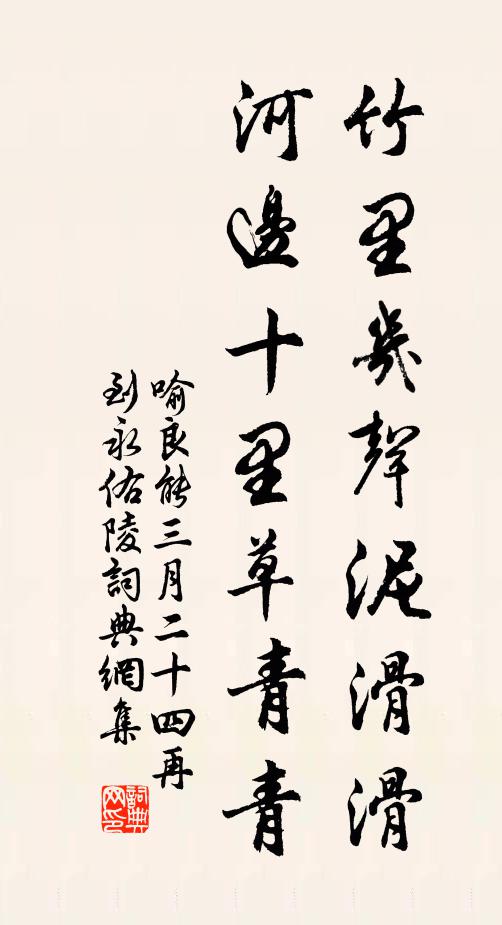 竹里幾聲泥滑滑
河邊十里草青青
喻良能三月二十四再
到永佑陵詞典網集
詞典
网印